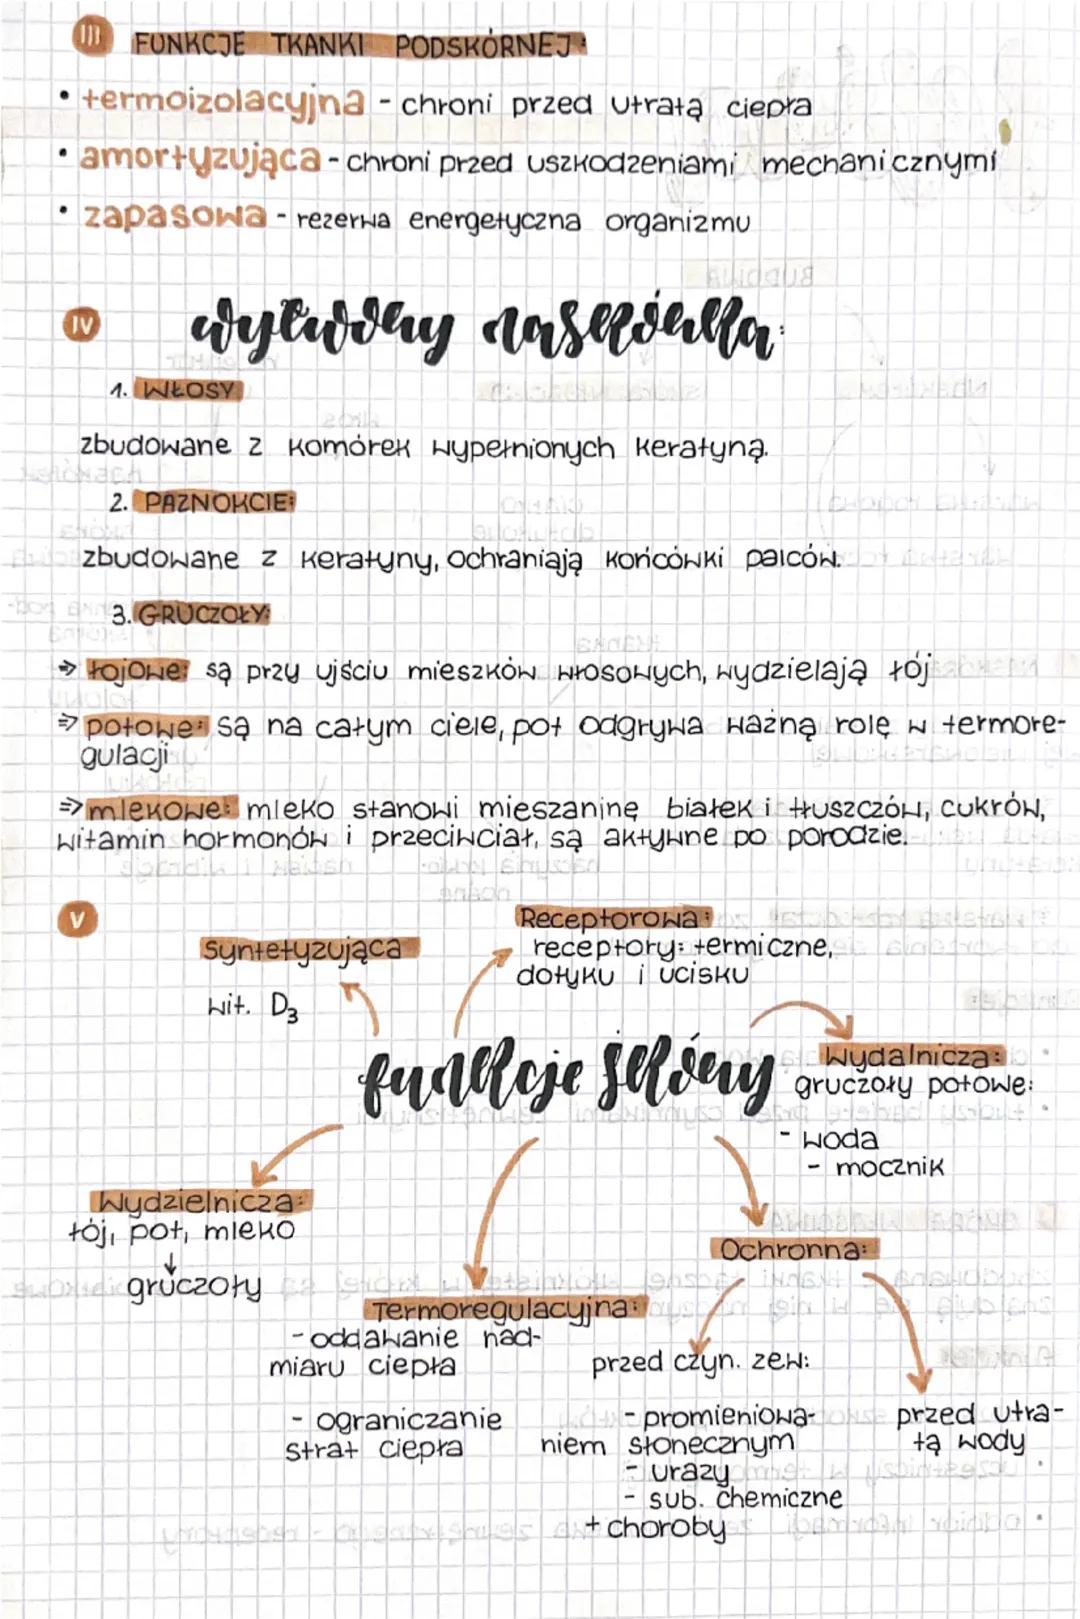 III FUNKCJE TKANKI PODSKÓRNEJ:
• termoizolacyjna - chroni przed utratą ciepła
• amortyzująca - chroni przed uszkodzeniami mechanicznymi
• zapasowa - rezerwa energetyczna organizmu
IV wytwory naskórka:
1. WŁOSY
zbudowane z komórek wypełnionych keratyną.
2. PAZNOKCIE:
zbudowane z keratyny, ochraniają końcówki palców.
3. GRUCZOŁY:
⇒ łojowe: są przy ujściu mieszków włosowych, wydzielają łój
⇒ potowe: są na całym ciele, pot odgrywa ważną rolę w termore-
gulacji
⇒ mlekowe: mleko stanowi mieszaninę białek i tłuszczów, cukrów,
witamin hormonów i przeciwciał, są aktywne po porodzie.
V
Syntetyzująca
wit. D3
Receptorowa:
receptory: termiczne,
dotyku i ucisku
funkcje skóry
Wydalnicza:
gruczoły potowe:
- woda
- mocznik
Wydzielnicza:
łój, pot, mleko
↓
gruczoły
Termoregulacyjna:
- oddawanie nad-
miaru ciepła
- ograniczanie
strat ciepła
Ochronna:
przed czyn. zew:
- promieniowa-
niem słonecznym
- urazy
- sub. chemiczne
+ choroby
przed utra-
tą wody